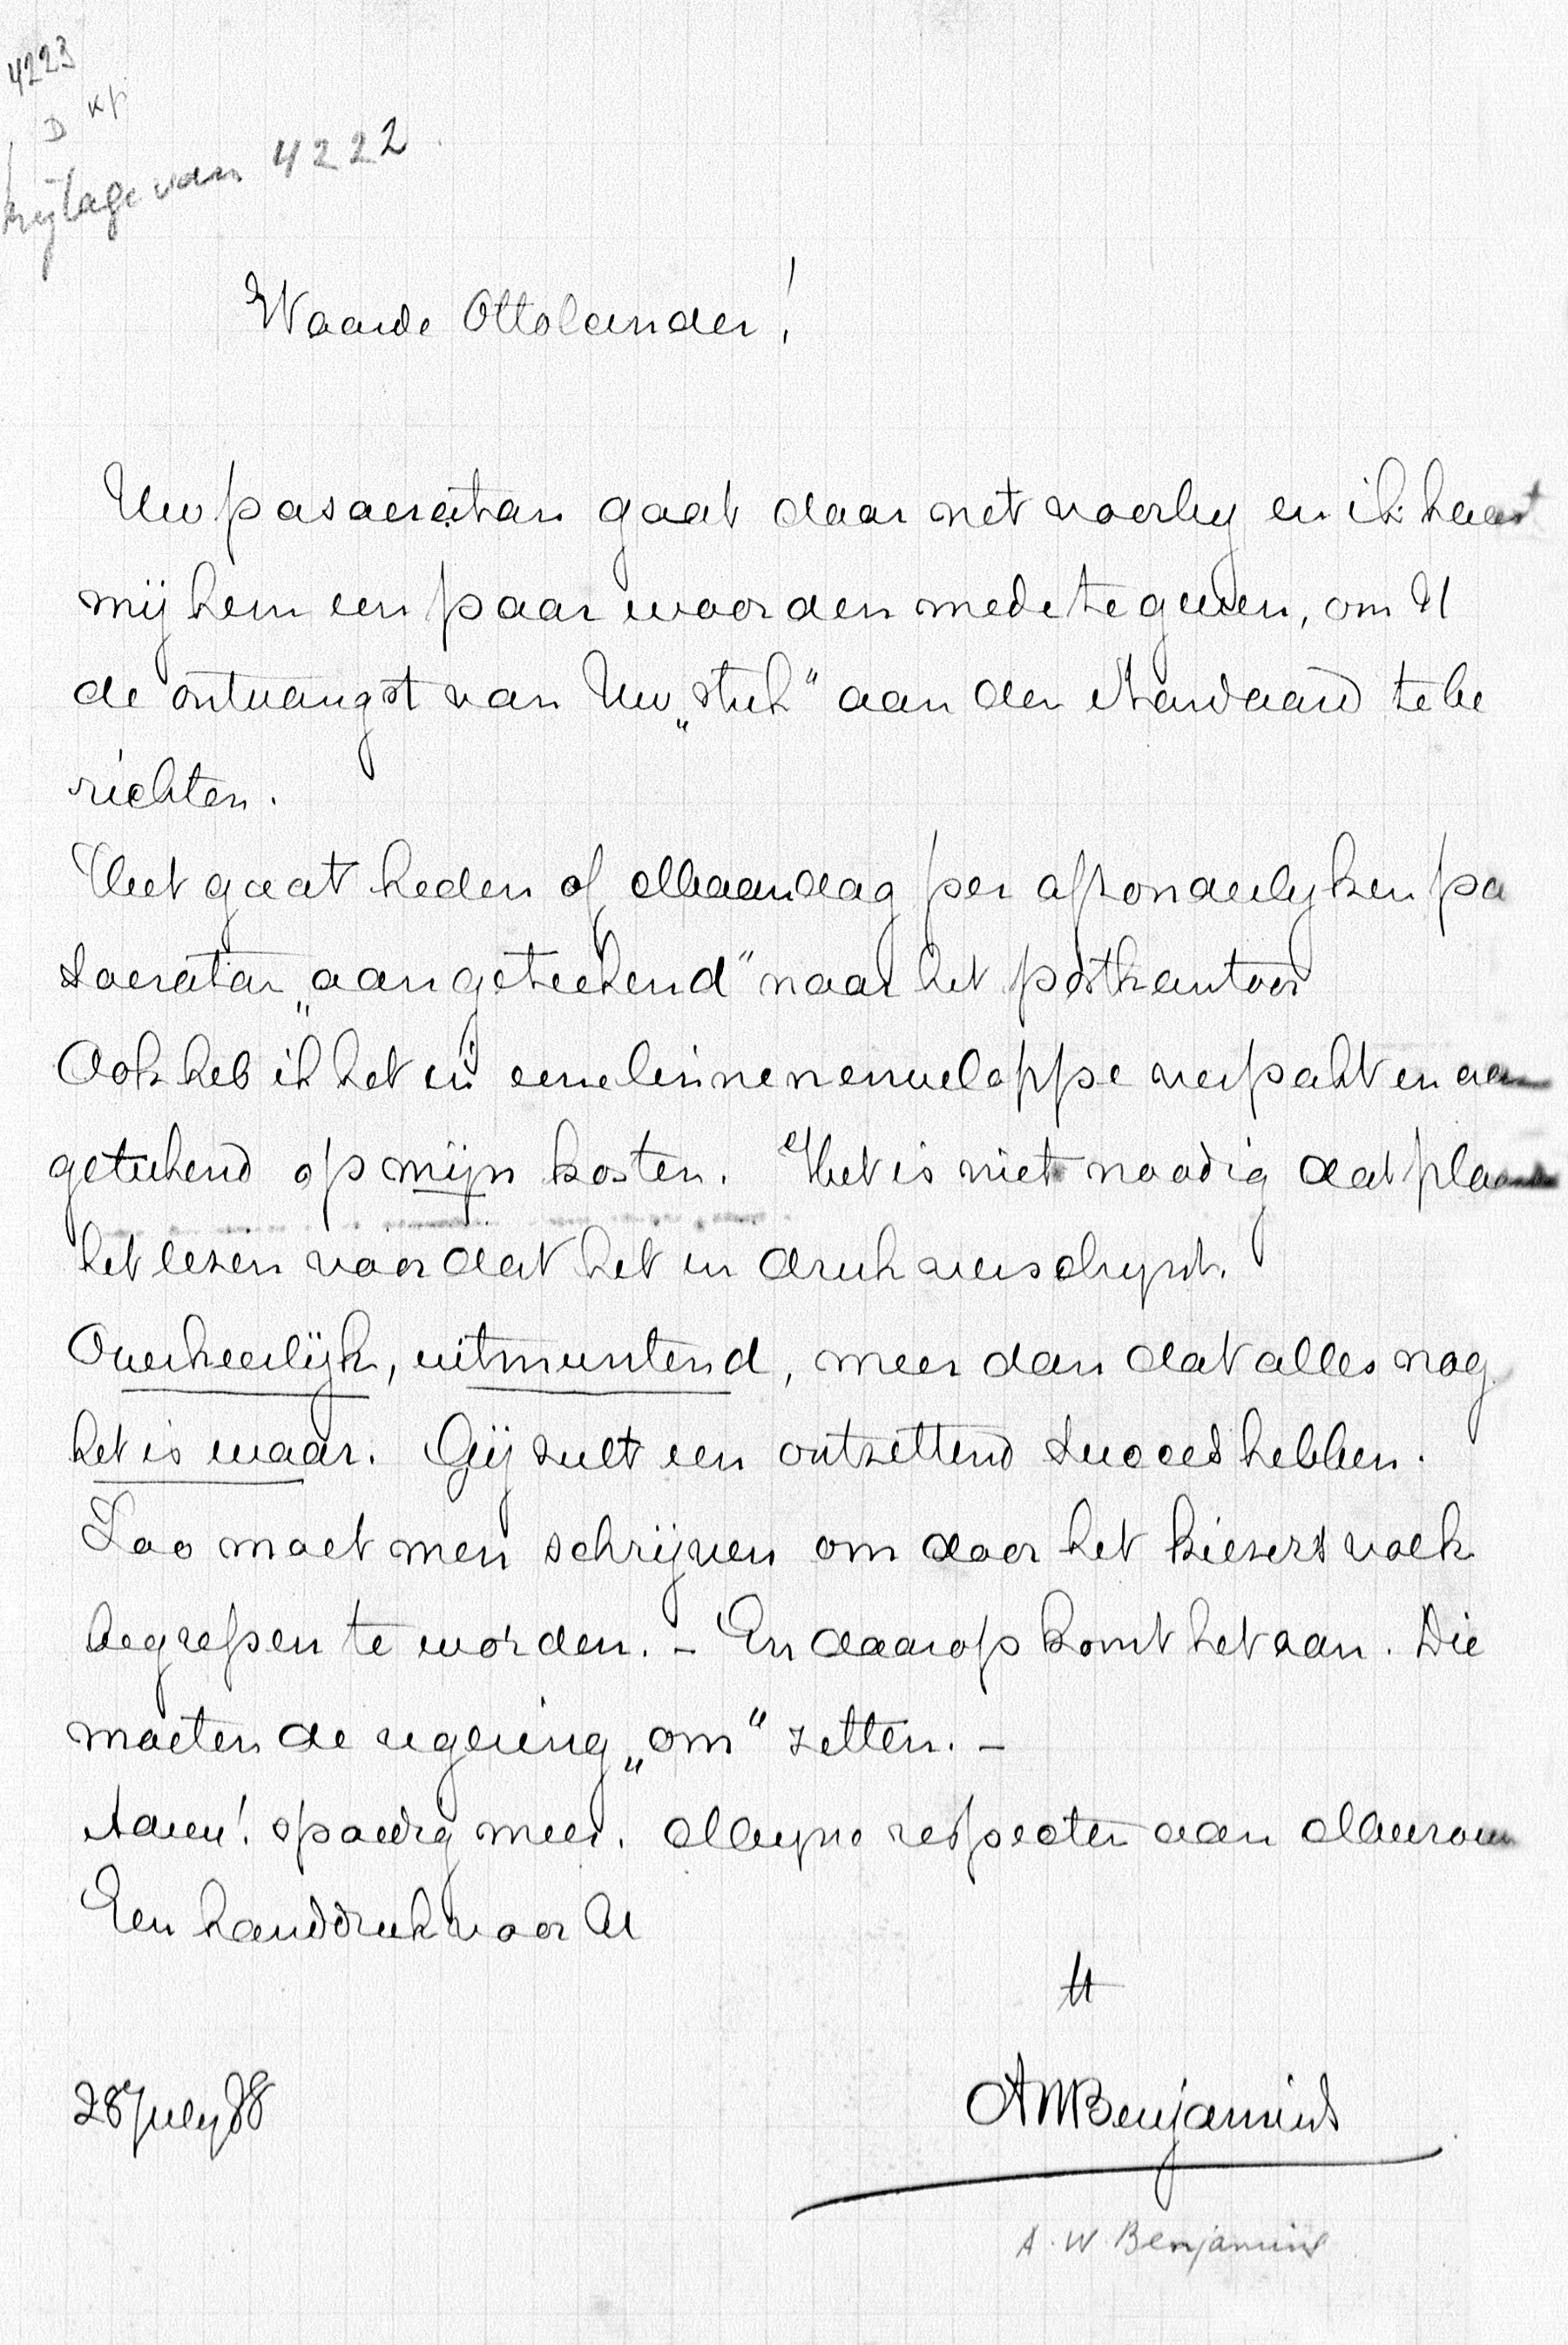 4223
D Kp
bijlage van 4222
Waarde Ottolander!
Uw pasaeratan gaat daar net voorby en ik haast
mij hem een paar woorden mede te geven, om U
de ontvangst van Uw „stuk" aan den Standaard te be
richten.
Het gaat heden of Maandag per afzonderlyken pa
saeratan „aangeteekend" naar het postkantoor
Ook heb ik het in eene linnen enveloppe verpakt en aan
geteekend op mijn kosten. Het is niet noodig dat
het lezen voor dat het in druk verschynt.
Overheerlijk, uitmuntend, meer dan dat alles nog
het is waar. Gij zult een ontzettend succes hebben.
Zoo moet men schrijven om door het kiezersvolk
begrepen te worden. – En daarop komt het aan. Die
moeten de regeering „om" zetten. –
Adieu! spoedig meer. Myne respecten aan Mevrouw
Een handdruk voor U
tt
28 July 88
AWBenjamins
A. W. Benjamins